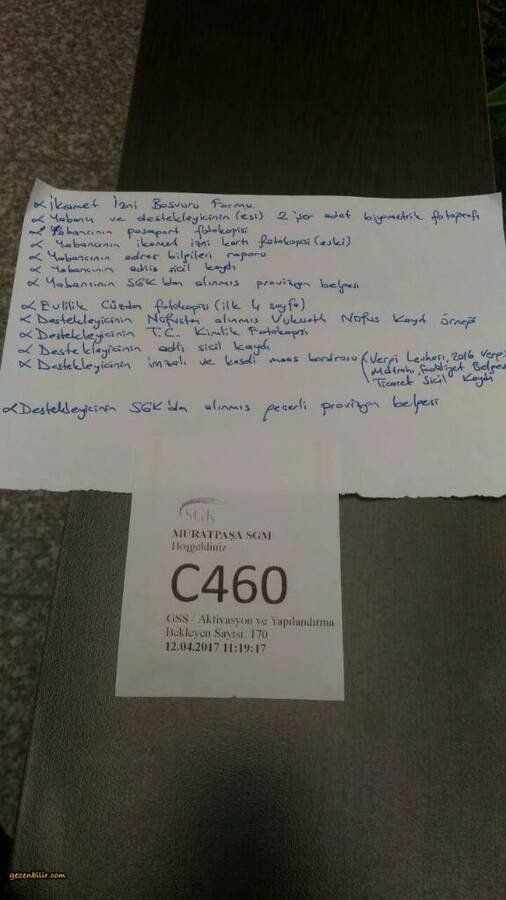 İkamet İzni Başvuru Formu
Yabancı ve destekleyicinin (eşi) 2'şer adet biyometrik fotoğrafı
Yabancının pasaport fotokopisi
Yabancının ikamet izni kartı fotokopisi (eski)
Yabancının adres bilgileri raporu
Yabancının adlis sicil kaydı
Yabancının SGK'dan alınmış provizyon belgesi
Evlilik Cüzdan fotokopisi (ilk 4 sayfa)
Destekleyicinin Nüfustan alınmış Vukuatlı Nüfus Kayıt Örneği
Destekleyicinin T.C. Kimlik Fotokopisi
Destekleyicinin adli sicil kaydı
Destekleyicinin imzalı ve kaşeli maaş bordrosu (Vergi Levhası, 2016 Vergi
Matrahı, Faaliyet Belgesi
Ticaret Sicil Kaydı
Destekleyicinin SGK'dan alınmış geçerli provizyon belgesi
SGK
MURATPAŞA SGM
Hoşgeldiniz
C460
GSS / Aktivasyon ve Yapılandırma
Bekleyen Sayısı: 170
12.04.2017 11:19:17
gezenbilir.com